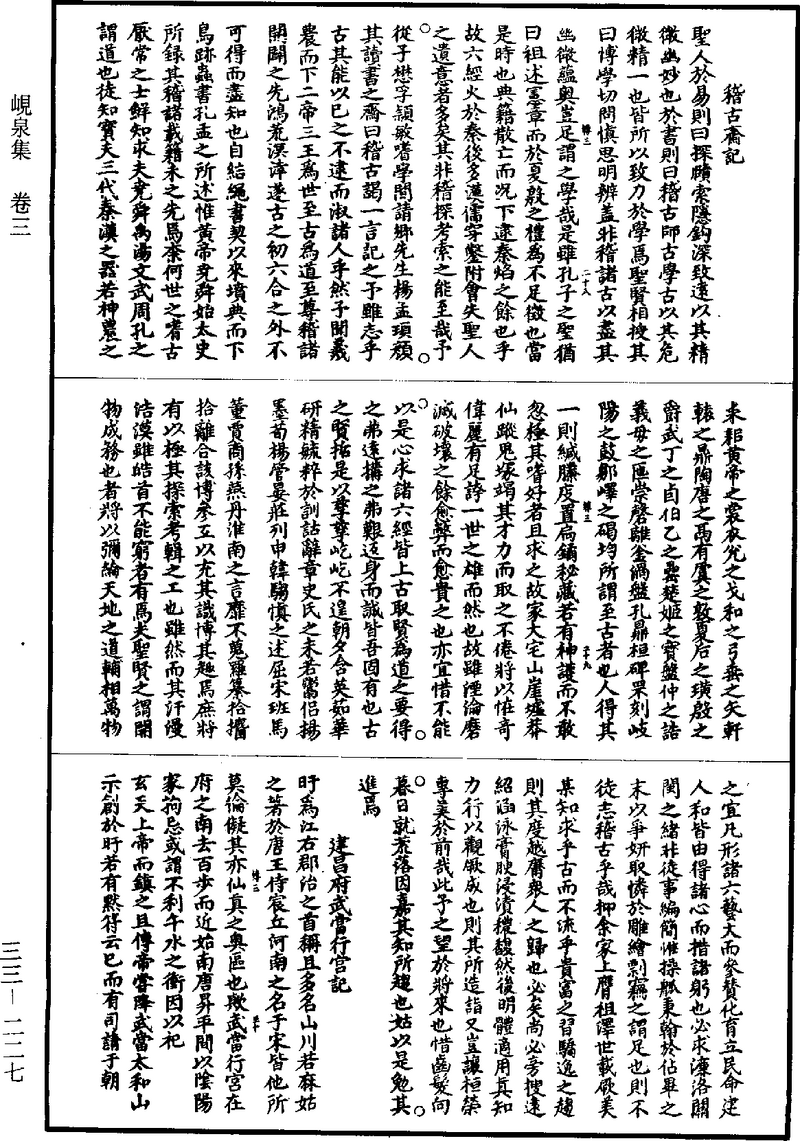 峴泉集　卷三
三三—二二七
稽古齋記
聖人於易則曰探賾索隱鉤深致遠以其精
微幽妙也於書則曰稽古師古學古以其危
微精一也皆所以致力於學焉聖賢相授其
曰博學切問慎思明辨蓋非稽諸古以盡其
幽微蘊奧豈足謂之學哉是雖孔子之聖猶
曰祖述憲章而於夏殷之禮為不足徵也當
是時也典籍散亡而况下逮秦焰之餘也乎
故六經火於秦後多漢儒穿鑿附會失聖人
之遺意者多矣其非稽探考索之能至哉予
從子懋孚頴敏嗜學間請鄉先生楊孟頊顏
其讀書之齋曰稽古謁一言記之予雖志乎
古其能以已之不逮而淑諸人乎然予聞羲
農而下二帝三王為世至古為道至尊稽諸
開闢之先鴻荒溟涬邃古之初六合之外不
可得而盡知也自結繩書契以來墳典而下
鳥跡蟲書孔孟之所述惟黃帝堯舜始太史
所録其稽諸載籍未之先焉柰何世之嗜古
厭常之士鮮知求夫堯舜禹湯文武周孔之
謂道也徒知寳夫三代秦漢之器若神農之
耒耜黃帝之裳衣兊之戈和之弓垂之矢軒
轅之鼎陶唐之鬲有虞之敦夏后之璜殷之
爵武丁之卣伯乙之罍楚姬之寳盤仲之誥
義母之匜崇磬雝釜鍋盤孔鼎桓碑罘刻岐
陽之鼓鄒嶧之碣均所謂至古者也人得其
一則緘縢庋置扃鐍秘藏若有神護而不敢
忽極其嗜好者且求之故家大宅山崖墟莽
仙蹤鬼塚竭其才力而取之不倦將以恠奇
偉麗有足誇一世之雄而然也故雖湮淪磨
滅破壞之餘愈弊而愈貴之也亦宜惜不能
以是心求諸六經皆上古取賢為道之要得
之弗遠搆之弗艱返身而誠皆吾固有也古
之賢括是以孳孳屹屹不遑朝夕含英茹華
研精毓粹於訓詁辭章史氏之耒若鬻侣揚
墨荀楊管晏莊列申韓騶慎之述屈宋班馬
董賈商孫燕丹淮南之言靡不蒐羅纂拾擩
拾離合該博參互以充其識博其趣焉庶將
有以極其探索考輯之工也雖然而其汗漫
浩漠雖皓首不能窮者有焉夫聖賢之謂開
物成務也者將以彌綸天地之道輔相萬物
之宜凡形諸六藝大而參賛化育立民命建
人和皆由得諸心而措諸躬也必求濂洛關
閩之緒非徒事編簡惟操觚秉翰於佔畢之
末以爭妍取憐於雕繪剽竊之謂足也則不
徒志稽古乎哉抑余家上膺祖澤世載厥美
某知求乎古而不流乎貴富之習驕逸之趨
則其度越庸衆人之歸也必矣尚必旁搜遠
紹涵泳膏腴浸漬穠馥然後明體適用真知
力行以觀厥成也則其所造詣又豈讓桓榮
專美於前哉此予之望於將來也惜齒髮向
暮日就荒落因嘉其知所趨也姑以是勉其
進焉
建昌府武當行宫記
旴為江右郡治之首稱且多名山川若麻姑
之著於唐王侍宸丘河南之名于宋皆他所
莫倫儗其亦仙真之奧區也歟武當行宫在
府之南去百步而近始南唐昇平間以陰陽
家拘忌或謂不利午水之衝因以祀
玄天上帝而鎮之且傳帝嘗降武當太和山
示創於旴若有默符云已而有司請于朝